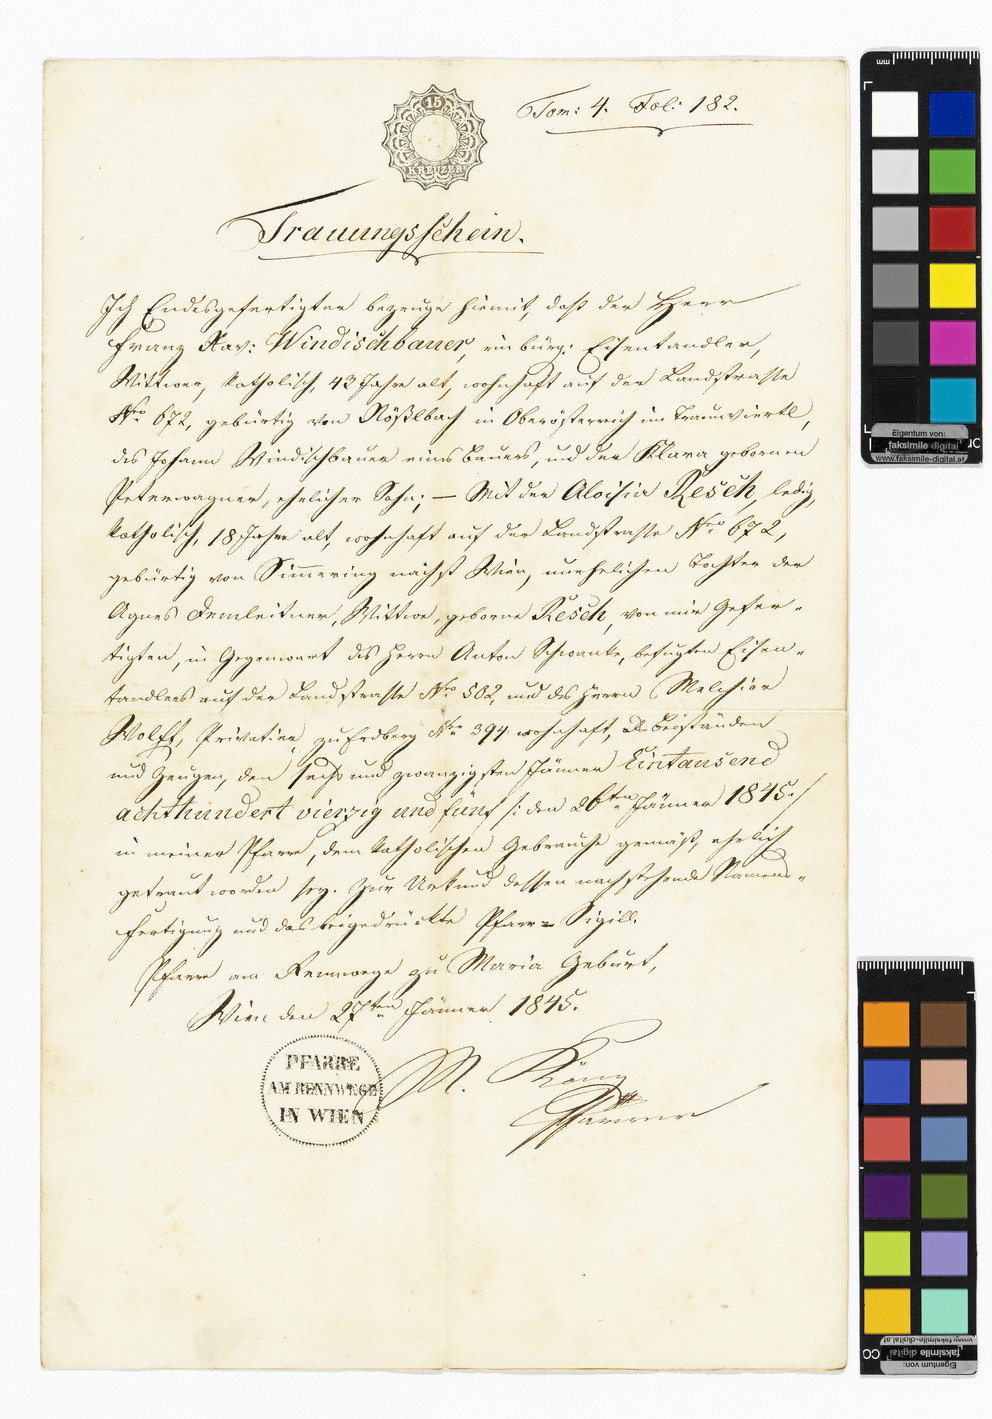 15
KREUZER
Tom: 4. Fol: 182.
Trauungsschein.
Ich Endesgefertigter bezeuge hiemit, daß der Herr
Franz Xav: Windischbauer, ein bürg: Eisentandler,
Wittwer, katholisch, 42 Jahre alt, wohnhaft auf der Landstrasse
Nro 672, gebürtig von in Oberösterreich im Traunviertl,
des Johann Windischbauer eines Bauers, und der Klara gebornen
Peterwagner, ehelicher Sohn; — Mit der Aloisia Resch, ledig,
katholisch, 18 Jahre alt, wohnhaft auf der Landstrasse Nro 672,
gebürtig von Simmering nächst Wien, unehelichen Tochter der
Agnes Demleitner, Wittwe, geborne Resch, von mir Gefer-
tigten, in Gegenwart des Herrn Anton Schwanke, befugten Eisen-
tandlers auf der Landstrasse Nro 502, und des Herrn Melchior
Wolff, Privatier, zu Erdberg Nro 394 wohnhaft, als Beiständen
und Zeugen, den sechs und zwanzigsten Jänner Eintausend
achthundert vierzig und fünf /: den 26ten Jänner 1845 :/
in meiner Pfarre, dem katholischen Gebrauche gemäß, ehelich
getraut worden sey. Zur Urkund dessen nachstehende Namens-
fertigung und das beigedrückte Pfarr-Sigill.
Pfarre am Rennwege zu Maria Geburt,
Wien den 27ten Jänner 1845.
PFARRE
AM RENNWEGE
IN WIEN
M. König
Pfarrer
mm
Eigentum von:
faksimile digital
www.faksimile-digital.at
www.faksimile-digital.at
faksimile digital
Eigentum von: